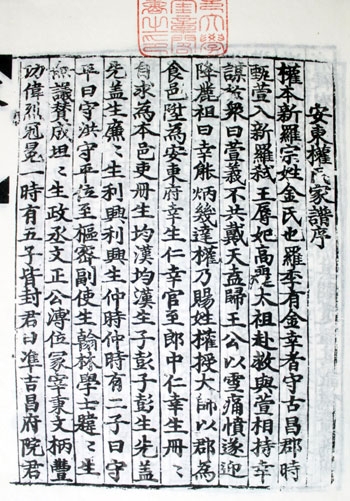 安東權氏家譜序
權本新羅宗姓金氏也羅季有金幸者守古昌郡時
甄萱入新羅弑王辱妃高麗太祖赴救與萱相持幸
謀於衆曰萱義不共戴天盍歸王公以雪痛憤遂迎
降麗祖曰幸能炳幾達權乃賜姓權授大師以郡為
食邑陞為安東府幸生仁幸官至郎中仁幸生冊〻
自求為本邑吏冊生均漢均漢生子彭子彭生先盖
先盖生廉〻生利興利興生仲時仲時有二子曰守
平曰守洪守平位至樞密副使生翰林學士韙〻生
僉議贊成㫜〻生政丞文正公溥位冢宰秉文柄豊
功偉烈冠冕一時有五子皆封君曰準吉昌府院君